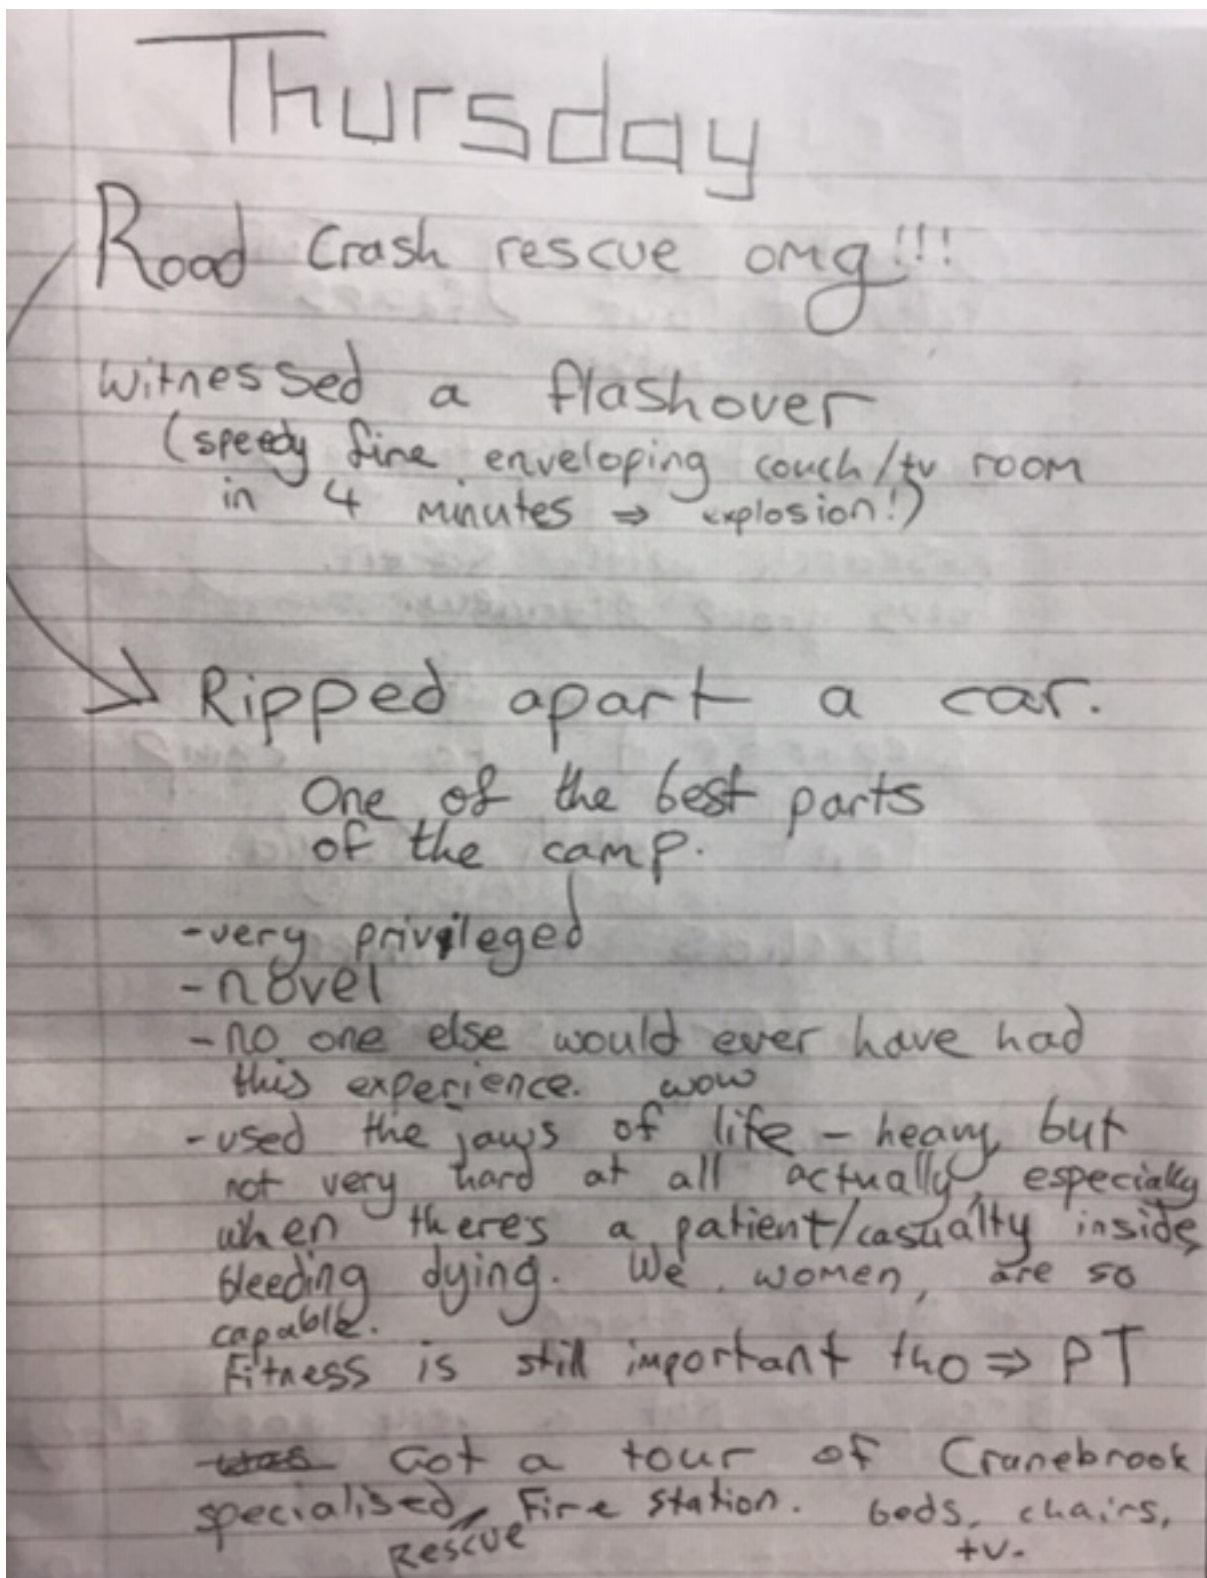 Thursday
Road Crash rescue omg!!!
witnessed a flashover
(speedy fire enveloping couch/tv room
in 4 minutes ⇒ explosion!)
Ripped apart a car.
One of the best parts
of the camp.
-very privileged
-novel
-no one else would ever have had
this experience. wow
-used the jaws of life - heavy but
not very hard at all actually, especially
when there's a patient/casualty inside,
bleeding dying. We, women, are so
capable.
Fitness is still important tho ⇒ PT
was Got a tour of Cranebrook
specialised Fire station. beds, chairs,
Rescue tv.